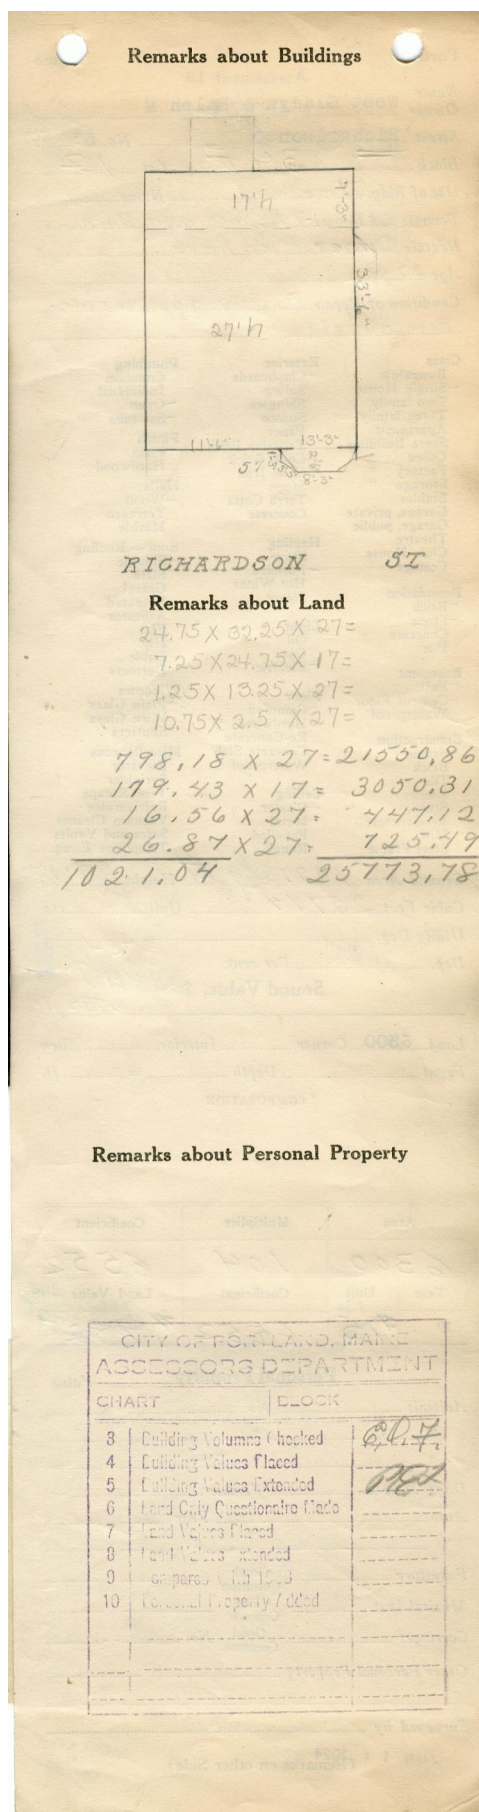 Remarks about Buildings
17'h
7'-3"
33'-6"
27'h
11'-6"
13'-3"
57
8'-3"
RICHARDSON ST
Remarks about Land
24.75 X 32.25 X 27=
7.25 X 24.75 X 17=
1.25 X 13.25 X 27=
10.75 X 2.5 X 27=
798.18 X 27=21550.86
179.43 X 17= 3050.31
16.56 X 27= 447.12
26.87 X 27= 725.49
1021.04 25773.78
Remarks about Personal Property
CITY OF PORTLAND, MAINE
ASSESSORS DEPARTMENT
CHART BLOCK
3 Building Volumns Checked
4 Building Values Placed
5 Building Values Extended
6 Land Only Questionaire Made
7 Land Values Placed
8 Land Values Extended
9 Compared With
10 Personal Property Added